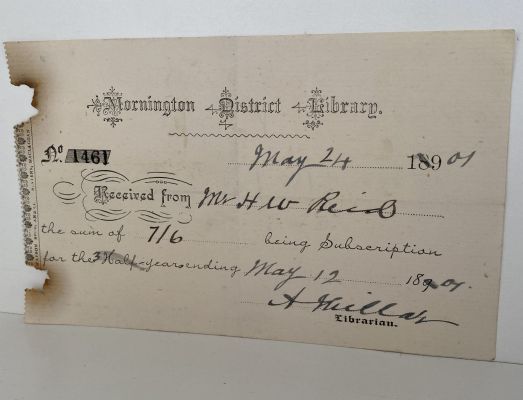 Mornington District Library.
No. 1461 May 24 189 01
Received from Mr H W Reid
the sum of 7/6 being Subscription
for the 3 Half-years ending May 12 189 01.
A Millar
Librarian.